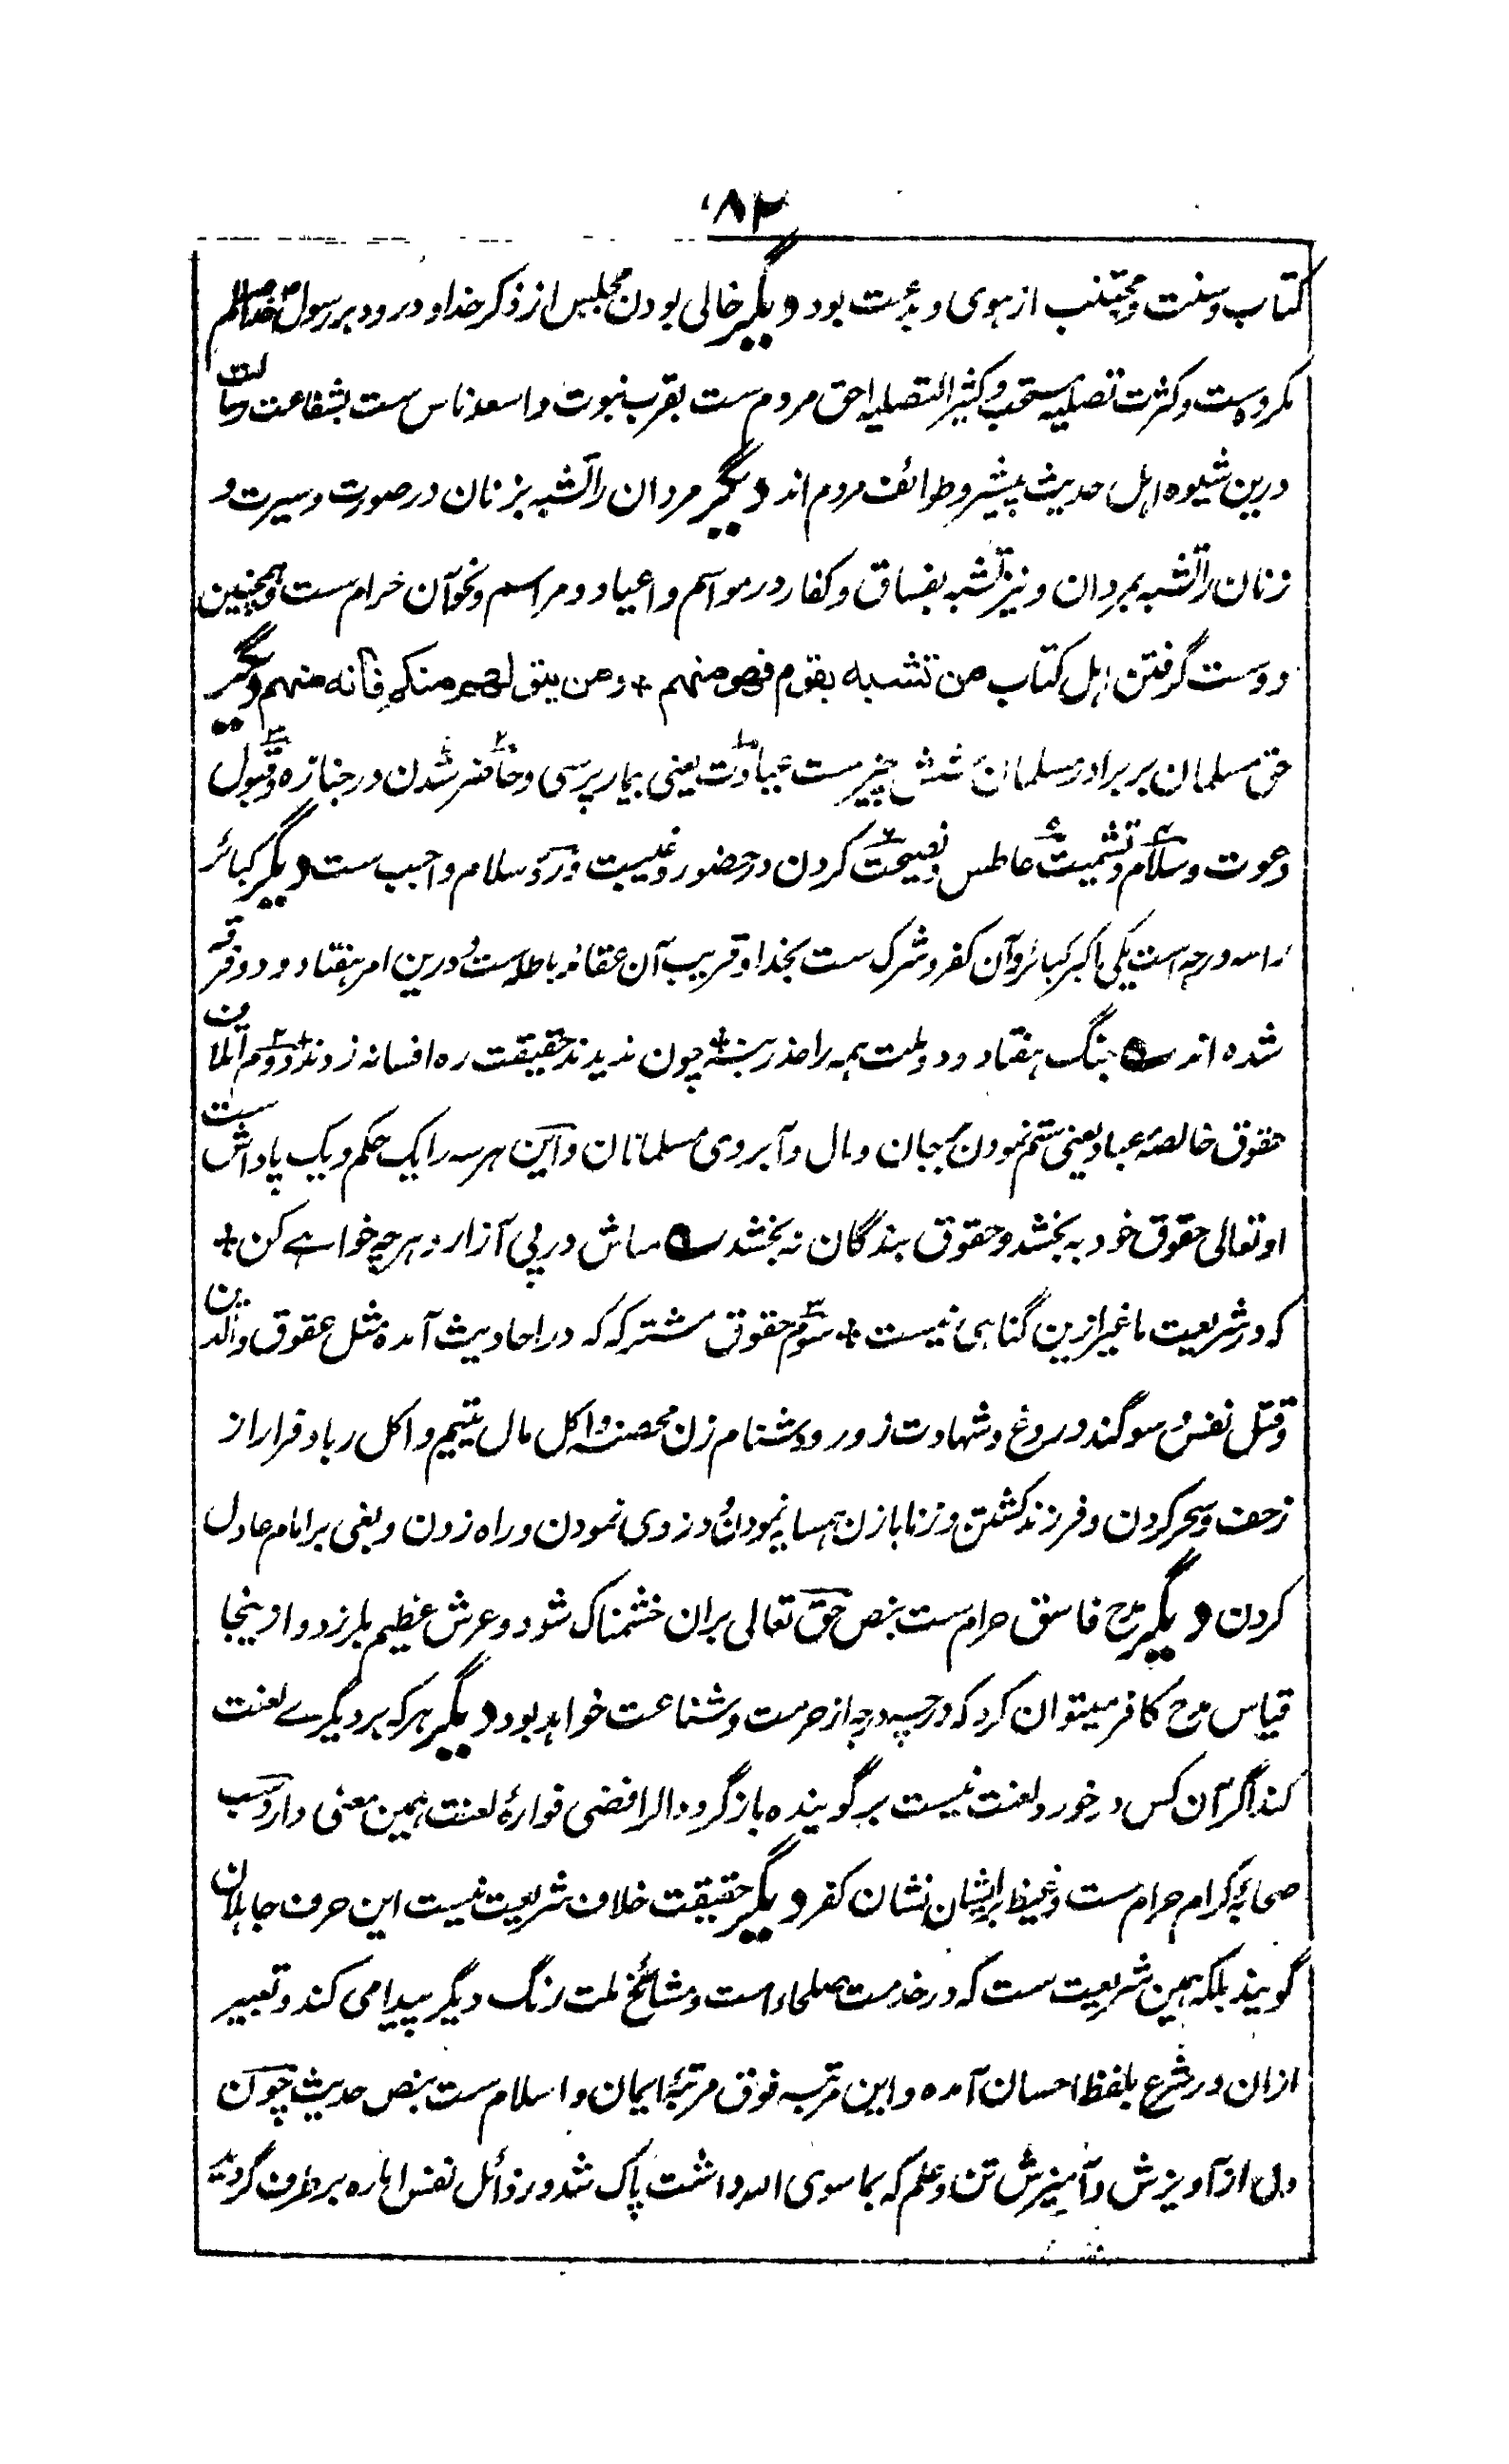 ۸۲
کتاب و سنت و مجتنب از هوی و بدعت بود دیگر خالی بودن مجلس از ذکر خدا و درود بر رسول خدا صلعم
مکروه ست و کثرت تصلیه مستحب و کثیر التصلیه احق مردم ست بقرب نبوت و اسعد ناس ست بشفاعت رسالت
درین شیوه اهل حدیث پیشرو طوائف مردم اند دیگر مردان را تشبه بزنان در صورت و سیرت و
زنان را تشبه بمردان و نیز تشبه بفساق و کفار در مواسم و اعیاد و مراسم و نحو آن حرام ست و همچنین
دوست گرفتن اهل کتاب من تشبه بقوم فهو منهم + ومن يتولهم منكم فانه منهم دیگر
حق مسلمان بر برادر مسلمان شش چیز ست عیادت یعنی بیمار پرسی و حاضر شدن در جنازه و قبول
دعوت و سلام و تشمیت عاطس و نصیحت کردن در حضور و غیبت و رد سلام واجب ست دیگر کبائر
را سه درجه است یکی اکبر کبائر و آن کفر و شرک ست بخدا و قریب آن عقائد باطله ست و درین امر هفتاد و دو فرقه
شده اند ۵ جنگ هفتاد و دو ملت همه را عذر بنه + چون ندیدند حقیقت ره افسانه زدند + دوم اتلاف
حقوق خالصهٔ عباد یعنی ستم نمودن بجان و مال و آبروی مسلمانان و این هر سه را یک حکم و یک پاداش ست
او تعالی حقوق خود به بخشد و حقوق بندگان نه بخشد ۵ مباش در پی آزار و هر چه خواهے کن +
که در شریعت ما غیر ازین گناهی نیست + سوم حقوق مشترکه که در احادیث آمده مثل عقوق والدین
و قتل نفس و سوگند دروغ و شهادت زور و دشنام زن محصنه و اکل مال یتیم و اکل ربا و فرار از
زحف و سحر کردن و فرزند کشتن و زنا با زن همسایه نمودن و دزدی نمودن و راه زدن و بغی بر امام عادل
کردن دیگر مدح فاسق حرام ست بنص حق تعالی بران خشمناک شود و عرش عظیم بلرزد و از ینجا
قیاس مدح کافر میتوان کرد که در چه درجه از حرمت و شناعت خواهد بود دیگر هر که بر دیگرے لعنت
کند اگر آن کس در خورد لعنت نیست بر گوینده باز گردد الرافضی فوارهٔ لعنت همین معنی دارد و سب
صحابهٔ کرام حرام ست و غیظ بر ایشان نشان کفر دیگر حقیقت خلاف شریعت نیست این حرف جاهلان
گویند بلکه همین شریعت ست که در خدمت صلحاء امت و مشائخ ملت رنگ دیگر پیدا می کند و تعبیر
ازان در شرع بلفظ احسان آمده و این مرتبه فوق مرتبهٔ ایمان و اسلام ست بنص حدیث چون
دل از آویزش و آمیزش تن و علم که بما سوی الله داشت پاک شد و رذائل نفس اماره بر طرف گردید